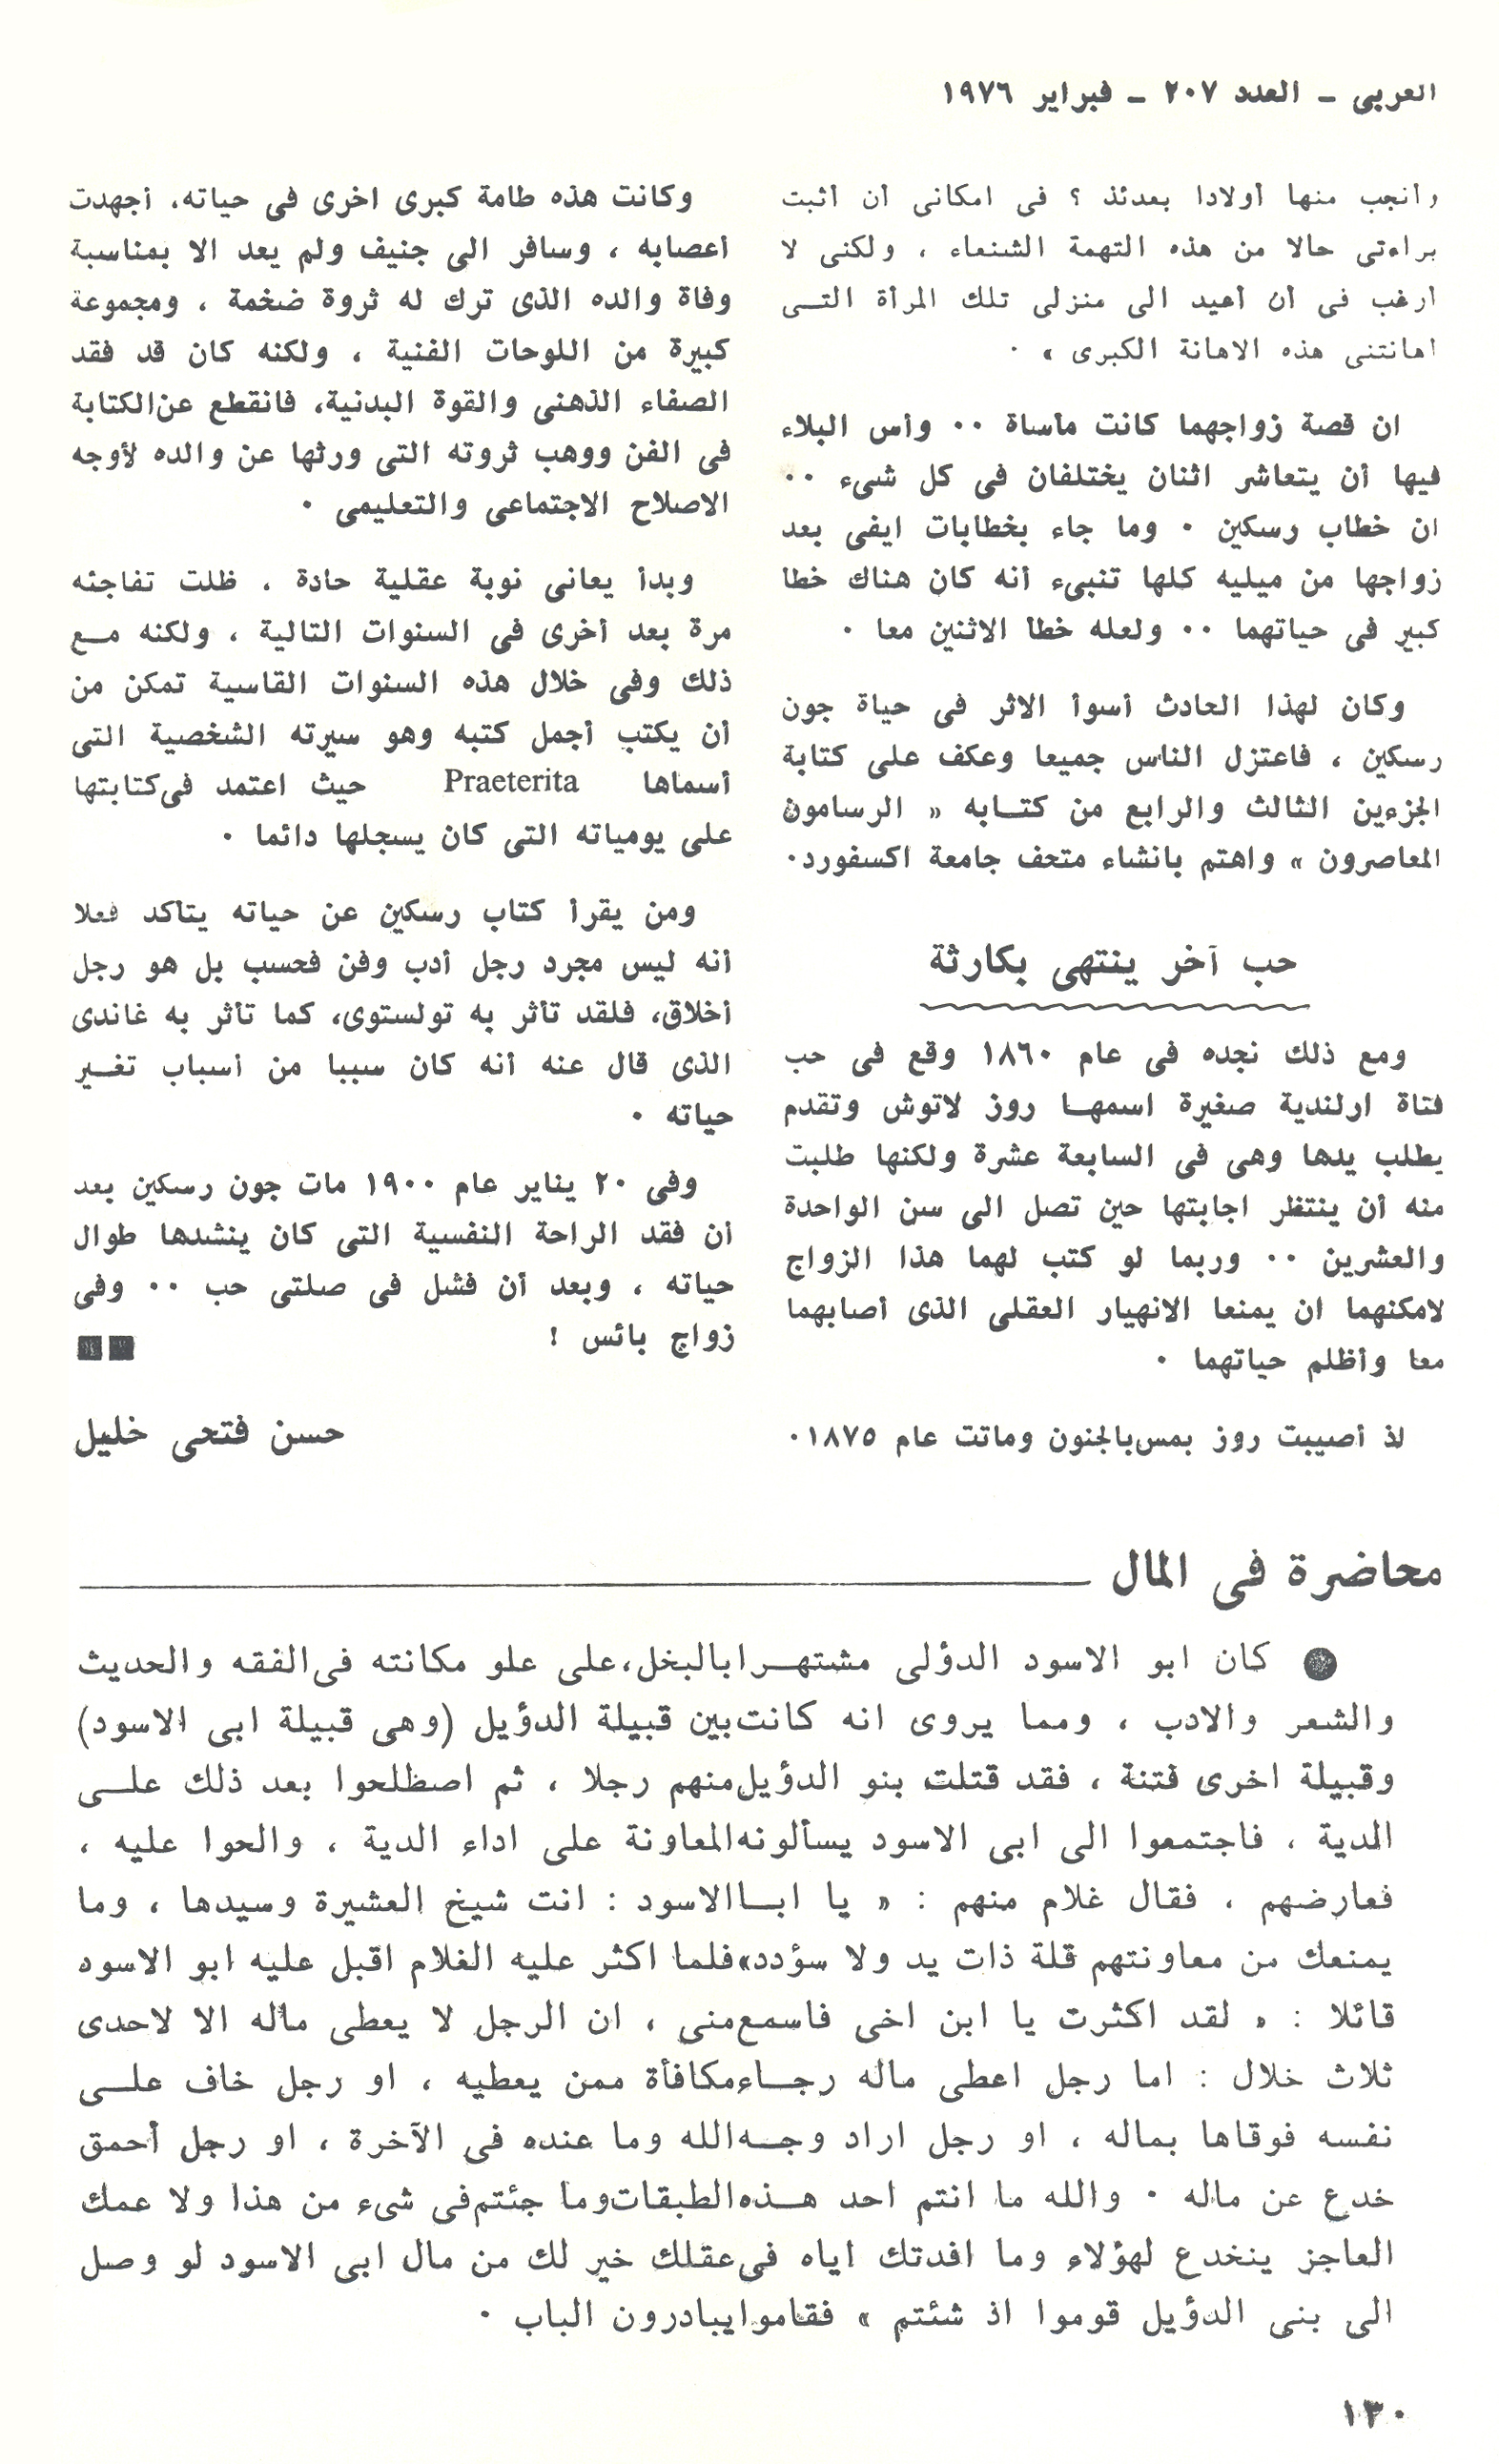 العربى ـ العدد ٢٠٧ ـ فبراير ١٩٧٦
وأنجب منها أولادا بعدئذ ؟ فى امكانى أن أثبت
براءتى حالا من هذه التهمة الشنعاء ، ولكنى لا
أرغب فى أن أعيد الى منزلى تلك المرأة التـى
اهانتنى هذه الاهانة الكبرى » ٠
ان قصة زواجهما كانت مأساة ٠٠ وأس البلاء
فيها أن يتعاشر اثنان يختلفان فى كل شىء ٠٠
ان خطاب رسكين ٠ وما جاء بخطابات ايفى بعد
زواجها من ميليه كلها تنبىء أنه كان هناك خطا
كبير فى حياتهما ٠٠ ولعله خطأ الاثنين معا ٠
وكان لهذا الحادث أسوأ الاثر فى حياة جون
رسكين ، فاعتزل الناس جميعا وعكف على كتابة
الجزءين الثالث والرابع من كتـابه « الرسامون
المعاصرون » واهتم بانشاء متحف جامعة اكسفورد٠
حب آخر ينتهى بكارثة
ومع ذلك نجده فى عام ١٨٦٠ وقع فى حب
فتاة ارلندية صغيرة اسمهـا روز لاتوش وتقدم
يطلب يدها وهى فى السابعة عشرة ولكنها طلبت
منه أن ينتظر اجابتها حين تصل الى سن الواحدة
والعشرين ٠٠ وربما لو كتب لهما هذا الزواج
لامكنهما ان يمنعا الانهيار العقلى الذى أصابهما
معا وأظلم حياتهما ٠
لذ أصيبت روز بمس بالجنون وماتت عام ١٨٧٥٠
وكانت هذه طامة كبرى اخرى فى حياته، أجهدت
أعصابه ، وسافر الى جنيف ولم يعد الا بمناسبة
وفاة والده الذى ترك له ثروة ضخمة ، ومجموعة
كبيرة من اللوحات الفنية ، ولكنه كان قد فقد
الصفاء الذهنى والقوة البدنية، فانقطع عن الكتابة
فى الفن ووهب ثروته التى ورثها عن والده لأوجه
الاصلاح الاجتماعى والتعليمى ٠
وبدأ يعانى نوبة عقلية حادة ، ظلت تفاجئه
مرة بعد أخرى فى السنوات التالية ، ولكنه مـع
ذلك وفى خلال هذه السنوات القاسية تمكن من
أن يكتب أجمل كتبه وهو سيرته الشخصية التى
أسماها Praeterita حيث اعتمد فى كتابتها
على يومياته التى كان يسجلها دائما ٠
ومن يقرأ كتاب رسكين عن حياته يتاكد فعلا
أنه ليس مجرد رجل أدب وفن فحسب بل هو رجل
أخلاق، فلقد تأثر به تولستوى، كما تأثر به غاندى
الذى قال عنه أنه كان سببا من أسباب تغـير
حياته ٠
وفى ٢٠ يناير عام ١٩٠٠ مات جون رسكين بعد
أن فقد الراحة النفسية التى كان ينشدها طوال
حياته ، وبعد أن فشل فى صلتى حب ٠٠ وفى
زواج بائس !
حسن فتحى خليل
محاضرة فى المال
كان ابو الاسود الدؤلى مشتهـرا بالبخل، على علو مكانته فى الفقه والحديث
والشعر والادب ، ومما يروى انه كانت بين قبيلة الدؤيل (وهى قبيلة ابى الاسود)
وقبيلة اخرى فتنة ، فقد قتلت بنو الدؤيل منهم رجلا ، ثم اصطلحوا بعد ذلك علـى
الدية ، فاجتمعوا الى ابى الاسود يسألونه المعاونة على اداء الدية ، والحوا عليه ،
فعارضهم ، فقال غلام منهم : « يا ابـا الاسود : انت شيخ العشيرة وسيدها ، وما
يمنعك من معاونتهم قلة ذات يد ولا سؤدد» فلما اكثر عليه الغلام اقبل عليه ابو الاسود
قائلا : « لقد اكثرت يا ابن اخى فاسمع منى ، ان الرجل لا يعطى ماله الا لاحدى
ثلاث خلال : اما رجل اعطى ماله رجـاء مكافأة ممن يعطيه ، او رجل خاف علـى
نفسه فوقاها بماله ، او رجل اراد وجـه الله وما عنده فى الآخرة ، او رجل أحمق
خدع عن ماله ٠ والله ما انتم احد هـذه الطبقات وما جئتم فى شىء من هذا ولا عمك
العاجز ينخدع لهؤلاء وما افدتك اياه فى عقلك خير لك من مال ابى الاسود لو وصل
الى بنى الدؤيل قوموا اذ شئتم » فقاموا يبادرون الباب ٠
١٣٠